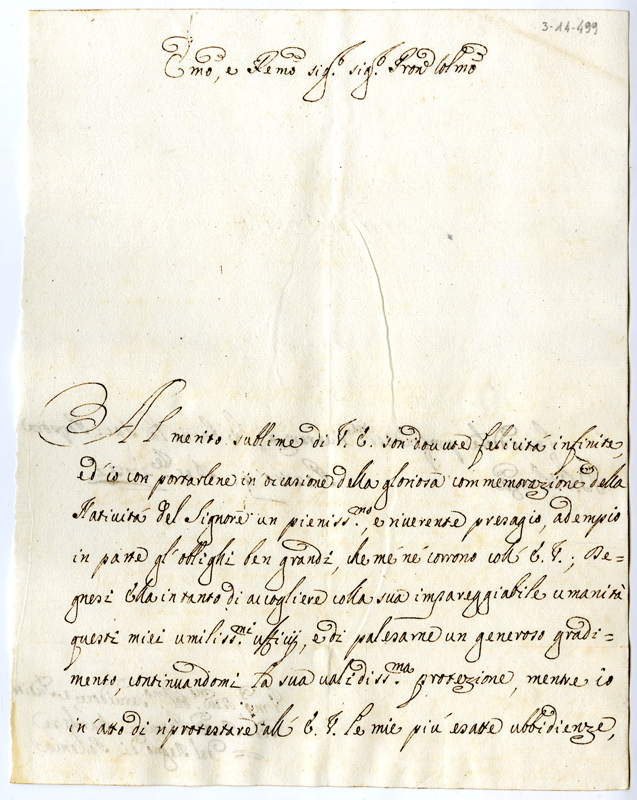 3-14-499
Emo, e Remo sig.r sig.r Pron Colmo
Al merito sublime di V. E. son dovute felicità infinite,
ed io con portarlene in occasione della gloriosa commemorazione della
Natività del Signore un pieniss.mo, e riverente presagio, adempio
in parte gl'oblighi ben grandi, che mé né corrono coll' E. V.; De=
gnesi Ella intanto di accogliere colla sua impareggiabile umanità
questi miei umiliss.mi uffizij, e di palesarne un generoso gradi=
mento, continuandomi la sua validiss.ma protezione, mentre io
in atto di riprotestare all' E. V. le mie più esatte ubbidienze,